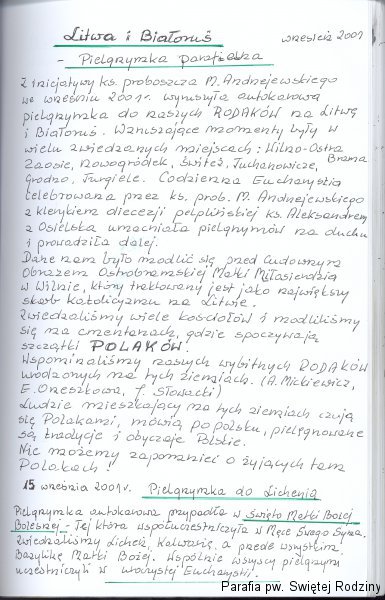 Litwa i Białoruś wrzesień 2001
- Pielgrzymka parafialna
Z inicjatywy ks. proboszcza M. Andrzejewskiego
we wrześniu 2001r. wyruszyła autokarowa
pielgrzymka do naszych RODAKÓW na Litwę
i Białoruś. Wzruszające momenty były w
wielu zwiedzanych miejscach: Wilno-Ostra
Brama
Zaosie, Nowogródek, Świteź, Tuchanowicze,
Grodno, Turgiele. Codzienna Eucharystia
celebrowana przez ks. prob. M. Andrzejewskiego
z klerykiem diecezji pelplińskiej ks. Aleksandrem
z Osielska umacniała pielgrzymów na duchu
i prowadziła dalej.
Dane nam było modlić się przed Cudownym
Obrazem Ostrobramskiej Matki Miłosierdzia
w Wilnie, który traktowany jest jako największy
skarb katolicyzmu na Litwie.
Zwiedzaliśmy wiele kościołów i modliliśmy
się na cmentarzach, gdzie spoczywają
szczątki POLAKÓW!
Wspominaliśmy naszych wybitnych RODAKÓW
urodzonych na tych ziemiach. (A. Mickiewicz,
E. Orzeszkowa, J. Słowacki)
Ludzie mieszkający na tych ziemiach czują
się Polakami, mówią po polsku, pielęgnowane
są tradycje i obyczaje Polskie.
Nie możemy zapomnieć o żyjących tam
Polakach!
15 września 2001r. Pielgrzymka do Lichenia
Pielgrzymka autokarowa przypadła w Święto Matki Bożej
Bolesnej - Tej która współuczestniczyła w Męce Swego Syna.
Zwiedzaliśmy Licheń, Kalwarię, a przede wszystkim
Bazylikę Matki Bożej. Wspólnie wszyscy pielgrzymi
uczestniczyli w uroczystej Eucharystii.
Parafia pw. Świętej Rodziny